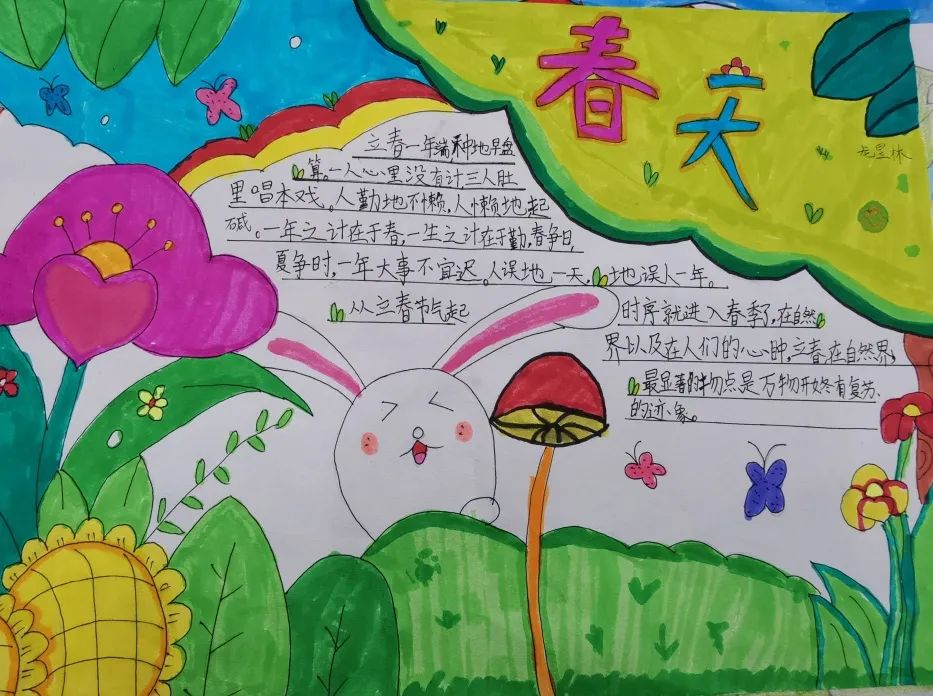 春天
龙昱林
立春一年端,种地早盘
算。一人心里没有计三人肚
里唱本戏。人勤地不懒,人懒地起
碱。一年之计在于春,一生之计在于勤,春争日,
夏争时,一年大事不宜迟。人误地一天,地误人一年。
从立春节气起
时序就进入春季了,在自然
界以及在人们的心中,立春在自然界、
最显著的物点是万物开始有复苏、
的迹象。